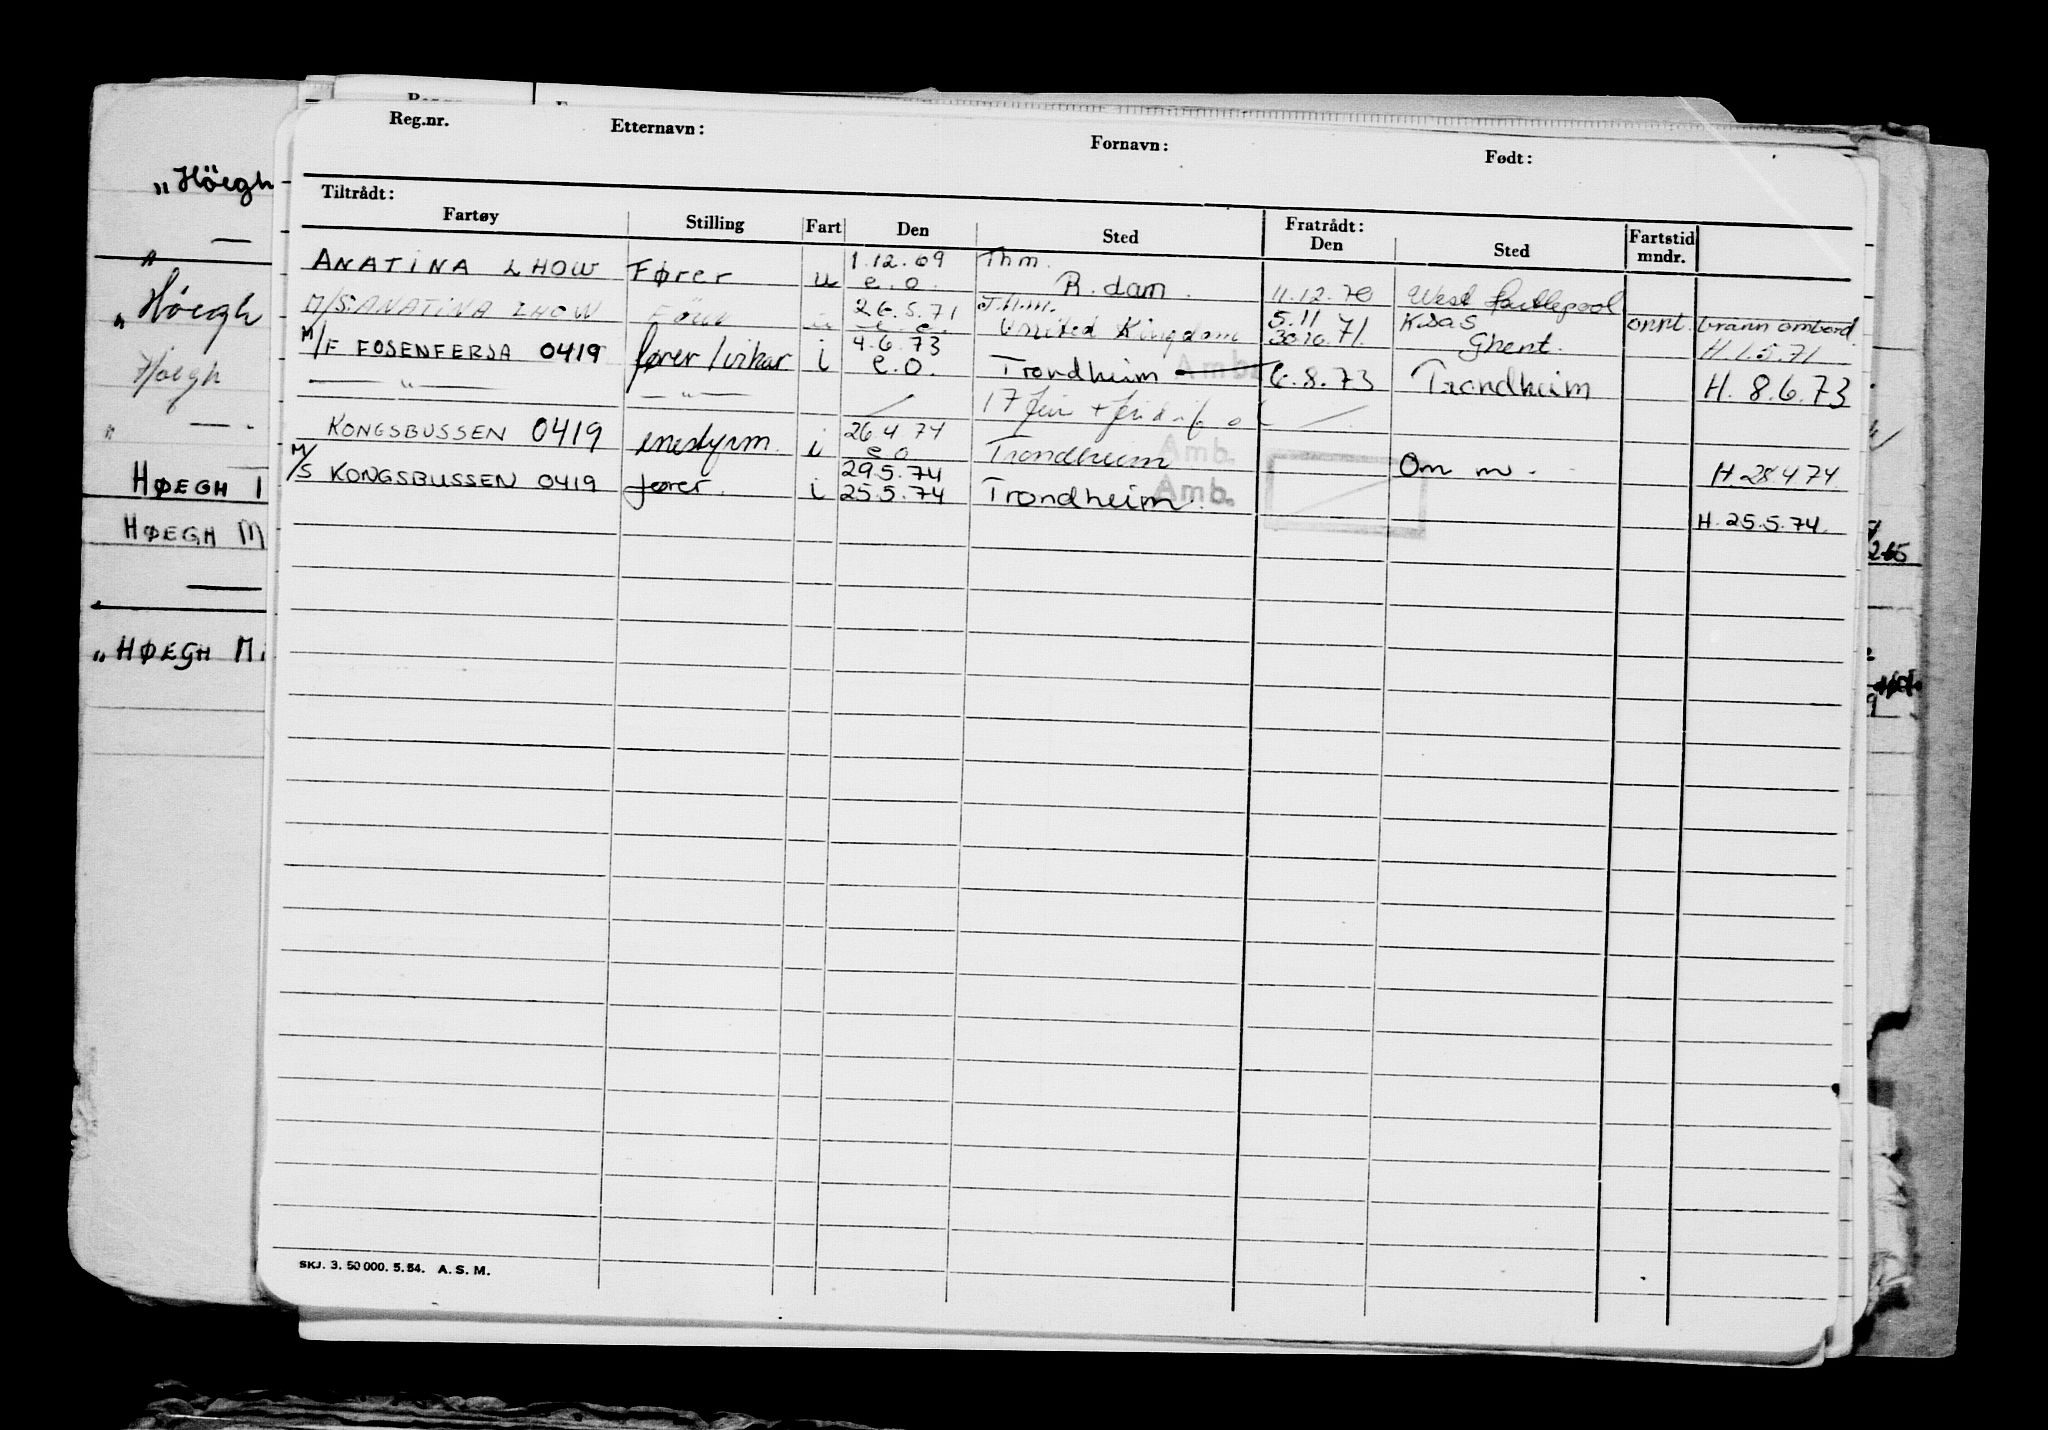 Reg.nr. Etternavn: Fornavn: Født:
Tiltrådt: Fratrådt:
Fartøy Stilling Fart Den Sted Den Sted Fartstid mndr.
ANATINA LHOW Fører u 1.12.69 e.o. Thm. R.dam. 11.12.70 West Hartlepool
M/S. ANATINA LHOW 26.5.71 e.o. Thm. United Kingdom 5.11 71. 30.10 Ghent. brann ombord. H.1.5.71
M/F FOSENFERJA 0419 fører/vikar i 4.6.73 e.o. Trondheim Amb. 6.8.73 Trondheim H. 8.6.73
— " — — " — 17
KONGSBUSSEN 0419 enestyrm. i 26.4.74 e.o. Trondheim Amb. Om m. H.28.4.74.
29.5.74
M/S KONGSBUSSEN 0419 fører. i 25.5.74 Trondheim. Amb. H. 25.5.74.
SKJ. 3. 50 000. 5.54. A. S. M.
„Höegh
„Höegh
Höegh
HØEGH
HØEGH M
„HØEGH Mi